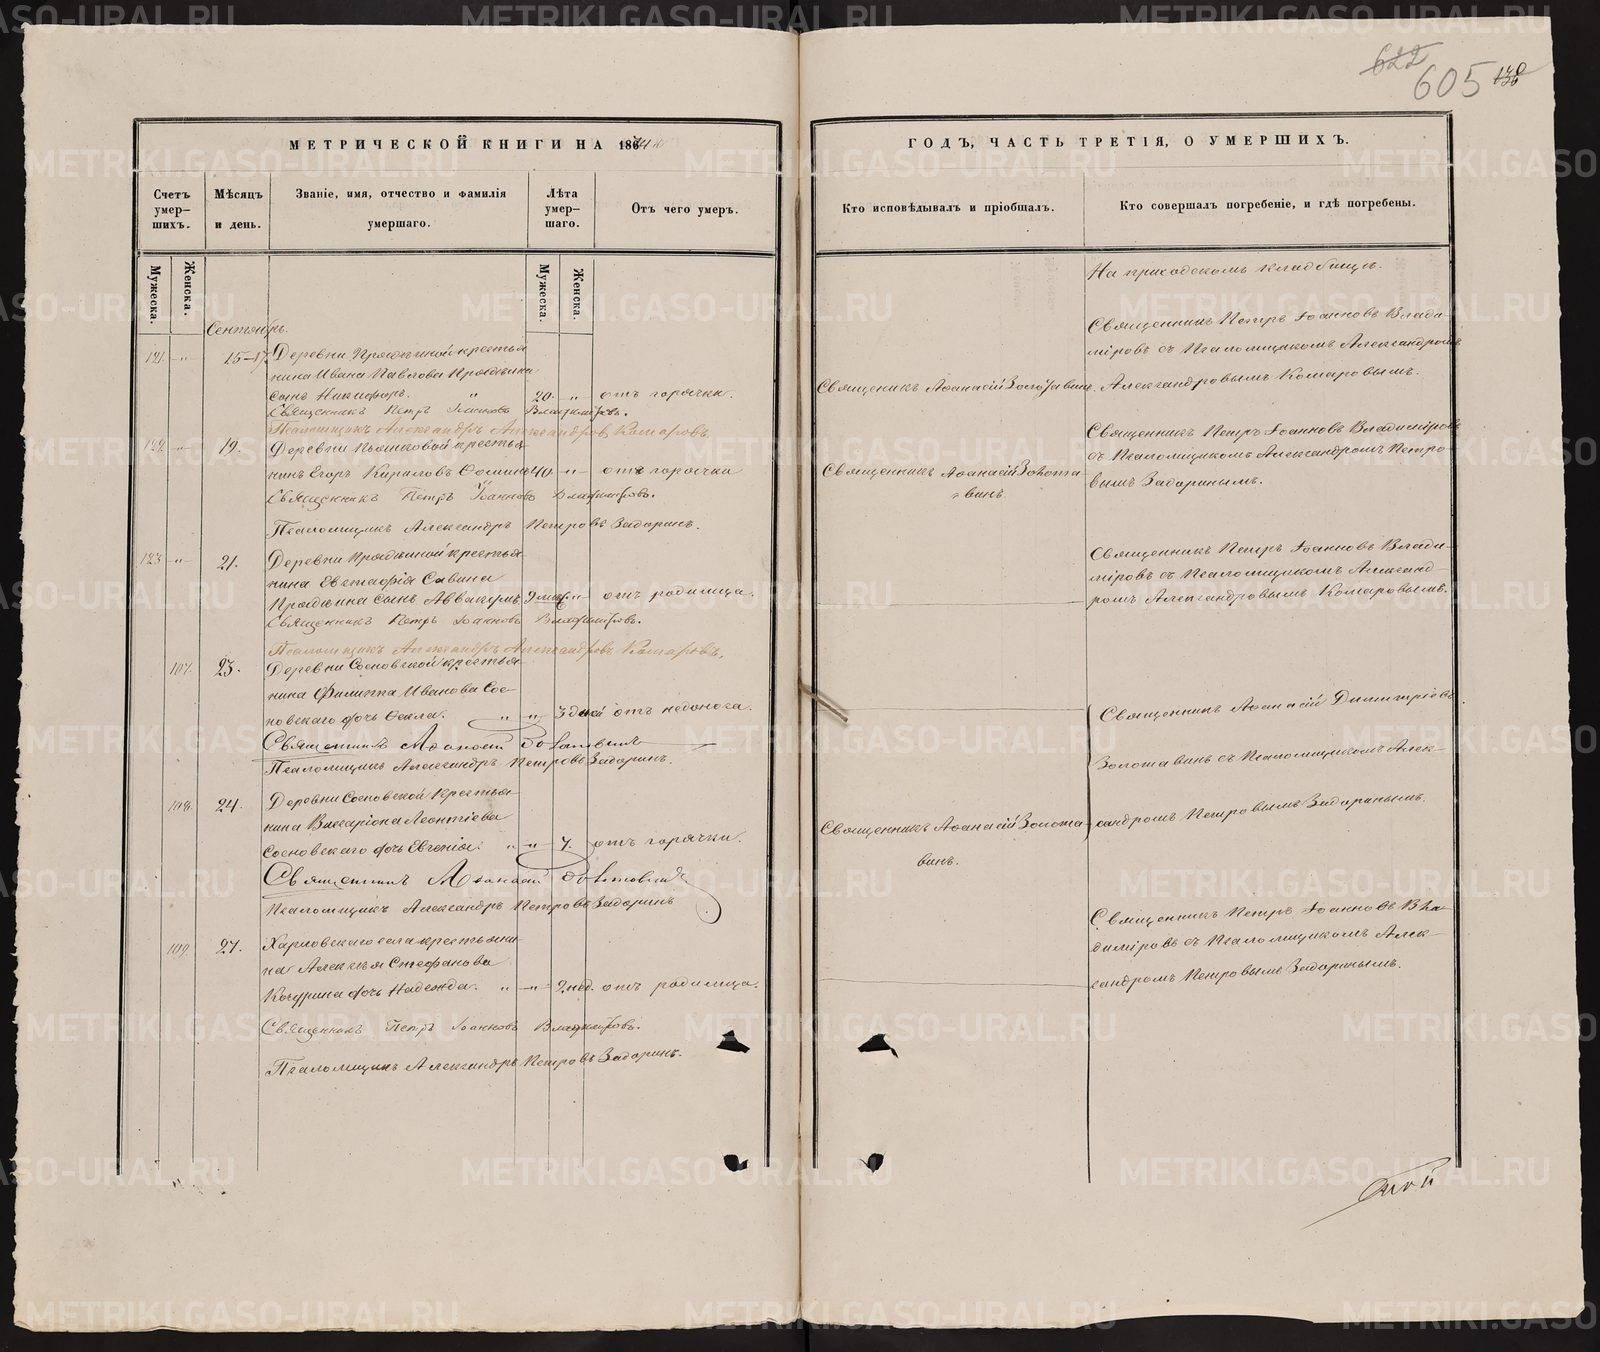 622
605
МЕТРИЧЕСКОЙ КНИГИ НА 186
ГОДЪ, ЧАСТЬ ТРЕТІЯ, О УМЕРШИХЪ.
Счетъ умер-шихъ.
Мѣсяцъ и день.
Званіе, имя, отчество и фамилія умершаго.
Лѣта умер-шаго.
Отъ чего умеръ.
Кто исповѣдывалъ и пріобщалъ.
Кто совершалъ погребеніе, и гдѣ погребены.
Мужеска.
Женска.
Мужеска.
Женска.
На приходскомъ кладбищѣ.
Сентябрь.
121. " 15-17 Деревни крестья-
нина Ивана Павлова
сынъ Никифоръ. " 20. " отъ горячки.
Священникъ Петръ Іоанновъ Владиміровъ.
Псаломщикъ Александръ Александровъ Комаровъ.
Священникъ Аѳанасій Золотавинъ.
Священникъ Петръ Іоанновъ Влади-
міровъ съ Псаломщикомъ Александромъ
Александровымъ Комаровымъ.
122. " 19. Деревни крестья-
нинъ Егоръ 40. " отъ горячки
Священникъ Петръ Іоанновъ Владиміровъ.
Псаломщикъ Александръ Петровъ Задоринъ.
Священникъ Аѳанасій Золота-
винъ.
Священникъ Петръ Іоанновъ Владиміровъ
съ Псаломщикомъ Александромъ Петро-
вымъ Задоринымъ.
123. " 21. Деревни крестья-
нина Евстафія Савина
сынъ Аввакумъ 9 мѣс. " отъ родимца.
Священникъ Петръ Іоанновъ Владиміровъ.
Псаломщикъ Александръ Александровъ Комаровъ.
Священникъ Петръ Іоанновъ Влади-
міровъ съ Псаломщикомъ Александ-
ромъ Александровымъ Комаровымъ.
107. 23. Деревни Сосновской крестья-
нина Филиппа Иванова Сос-
новскаго дочь Фекла. " " 3 дней отъ недоноса.
Священникъ Аѳанасій Золотавинъ
Псаломщикъ Александръ Петровъ Задоринъ.
Священникъ Аѳанасій Димитріевъ
Золотавинъ съ Псаломщикомъ Алек-
сандромъ Петровымъ Задоринымъ.
108. 24. Деревни Сосновской Крестья-
нина Виссаріона Леонтіева
Сосновскаго дочь Евгенія. " " 7. отъ горячки.
Священникъ Аѳанасій Золотавинъ
Псаломщикъ Александръ Петровъ Задоринъ
Священникъ Аѳанасій Золота-
винъ.
109. 27. Харловскаго села крестьяни-
на Алексѣя Стефанова
Кочурина дочь Надежда. " " 2 нед. отъ родимца.
Священникъ Петръ Іоанновъ Владиміровъ.
Псаломщикъ Александръ Петровъ Задоринъ.
Священникъ Петръ Іоанновъ Вла-
диміровъ съ Псаломщикомъ Алек-
сандромъ Петровымъ Задоринымъ.
METRIKI.GASO-URAL.RU